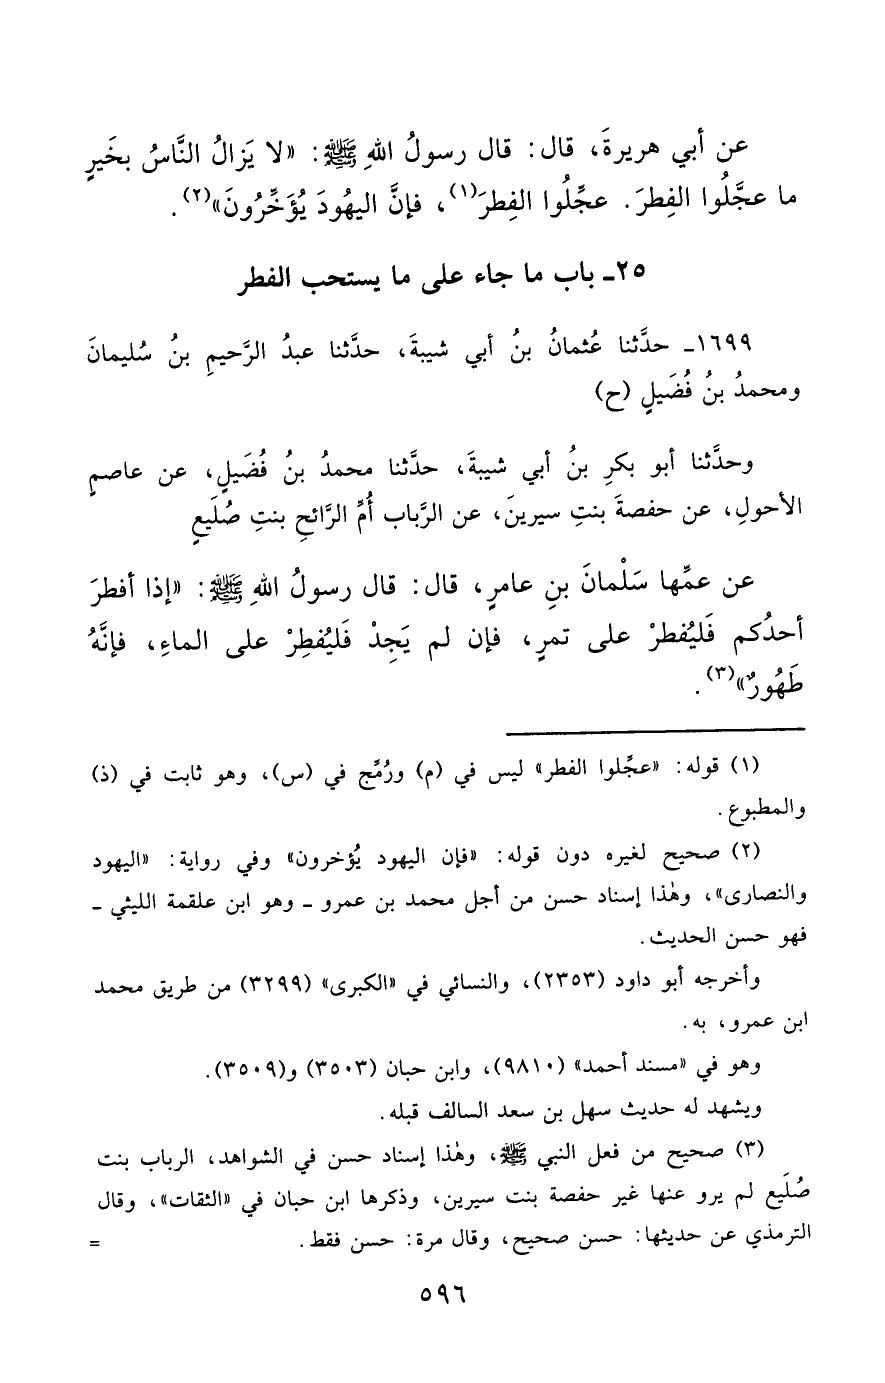 عن أبي هريرةَ، قال: قال رسولُ اللهِ ﷺ: «لا يَزالُ النَّاسُ بخَيرٍ
ما عجَّلُوا الفِطرَ. عجِّلُوا الفِطرَ(١)، فإنَّ اليهُودَ يُؤَخِّرُونَ»(٢).
٢٥ـ باب ما جاء على ما يستحب الفطر
١٦٩٩ـ حدَّثنا عُثمانُ بنُ أبي شيبةَ، حدَّثنا عبدُ الرَّحيمِ بنُ سُليمانَ
ومحمدُ بنُ فُضَيلٍ (ح)
وحدَّثنا أبو بكرِ بنُ أبي شيبةَ، حدَّثنا محمدُ بنُ فُضَيلٍ، عن عاصمٍ
الأحولِ، عن حفصةَ بنتِ سيرينَ، عن الرَّباب أُمِّ الرَّائحِ بنتِ صُلَيعٍ
عن عمِّها سَلْمانَ بنِ عامرٍ، قال: قال رسولُ اللهِ ﷺ: «إذا أفطرَ
أحدُكم فَليُفطرْ على تمرٍ، فإن لم يَجِدْ فَليُفطِرْ على الماءِ، فإنَّهُ
طَهُورٌ»(٣).
(١) قوله: «عجِّلوا الفطر» ليس في (م) ورُمِّج في (س)، وهو ثابت في (ذ)
والمطبوع.
(٢) صحيح لغيره دون قوله: «فإن اليهود يُؤخرون» وفي رواية: «اليهود
والنصارى»، وهٰذا إسناد حسن من أجل محمد بن عمرو ـ وهو ابن علقمة الليثي ـ
فهو حسن الحديث.
وأخرجه أبو داود (٢٣٥٣)، والنسائي في «الكبرى» (٣٢٩٩) من طريق محمد
ابن عمرو، به.
وهو في «مسند أحمد» (٩٨١٠)، وابن حبان (٣٥٠٣) و(٣٥٠٩).
ويشهد له حديث سهل بن سعد السالف قبله.
(٣) صحيح من فعل النبي ﷺ، وهٰذا إسناد حسن في الشواهد، الرباب بنت
صُلَيع لم يرو عنها غير حفصة بنت سيرين، وذكرها ابن حبان في «الثقات»، وقال
الترمذي عن حديثها: حسن صحيح، وقال مرة: حسن فقط. =
٥٩٦